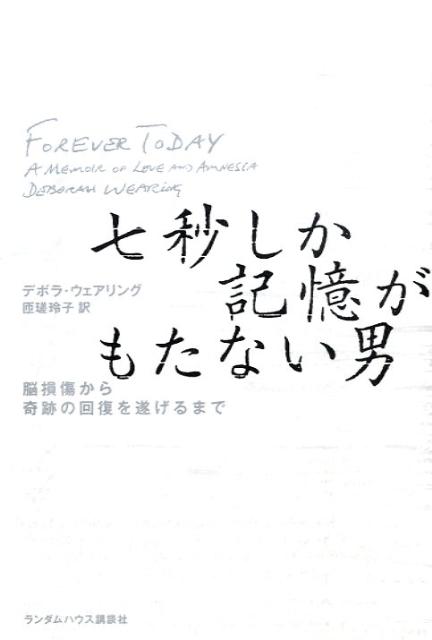 FOREVER TODAY
A MEMOIR OF LOVE AND AMNESIA
DEBORAH WEARING
七秒しか
記憶が
もたない男
デボラ・ウェアリング
匝瑳玲子 訳
脳損傷から
奇跡の回復を遂げるまで
ランダムハウス講談社